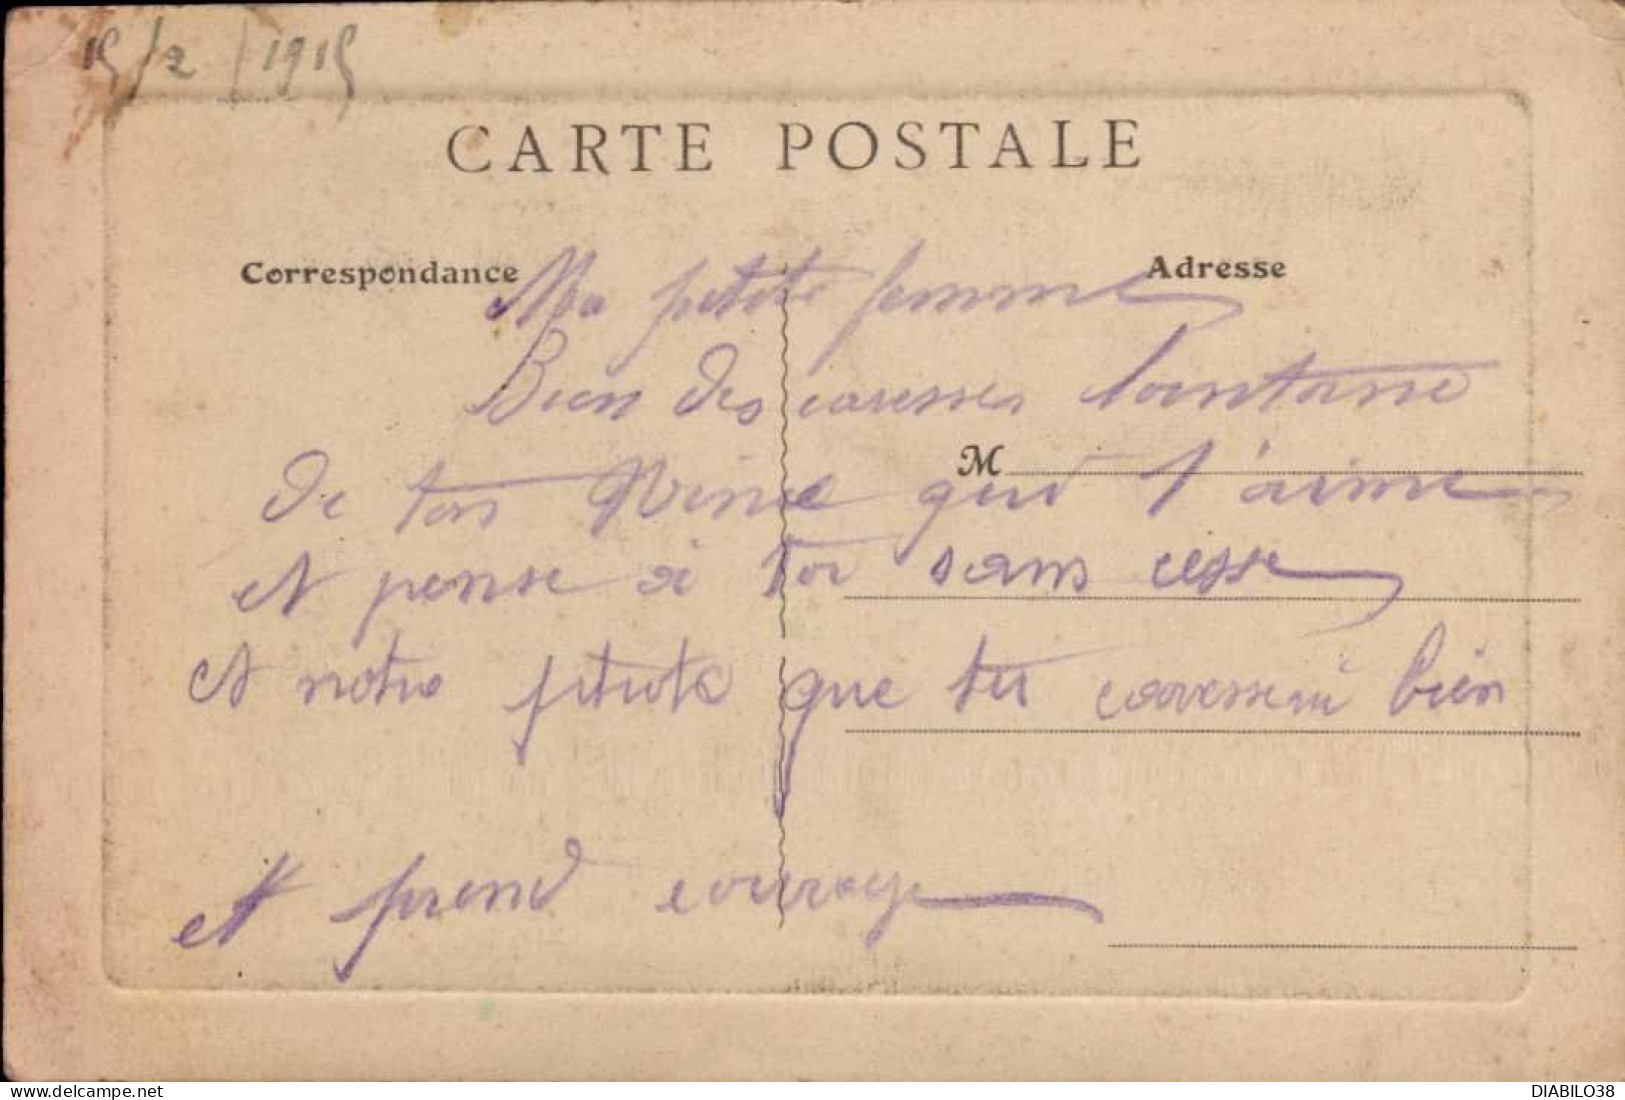 15/2/1915
CARTE POSTALE
Correspondance
Adresse
Ma petite femme
Bien des caresses
M
de ton qui t'aime
et pense à toi sans cesse
et notre petiote que tu caresserai bien
et prend courage
www.delcampe.net
DIABILO38